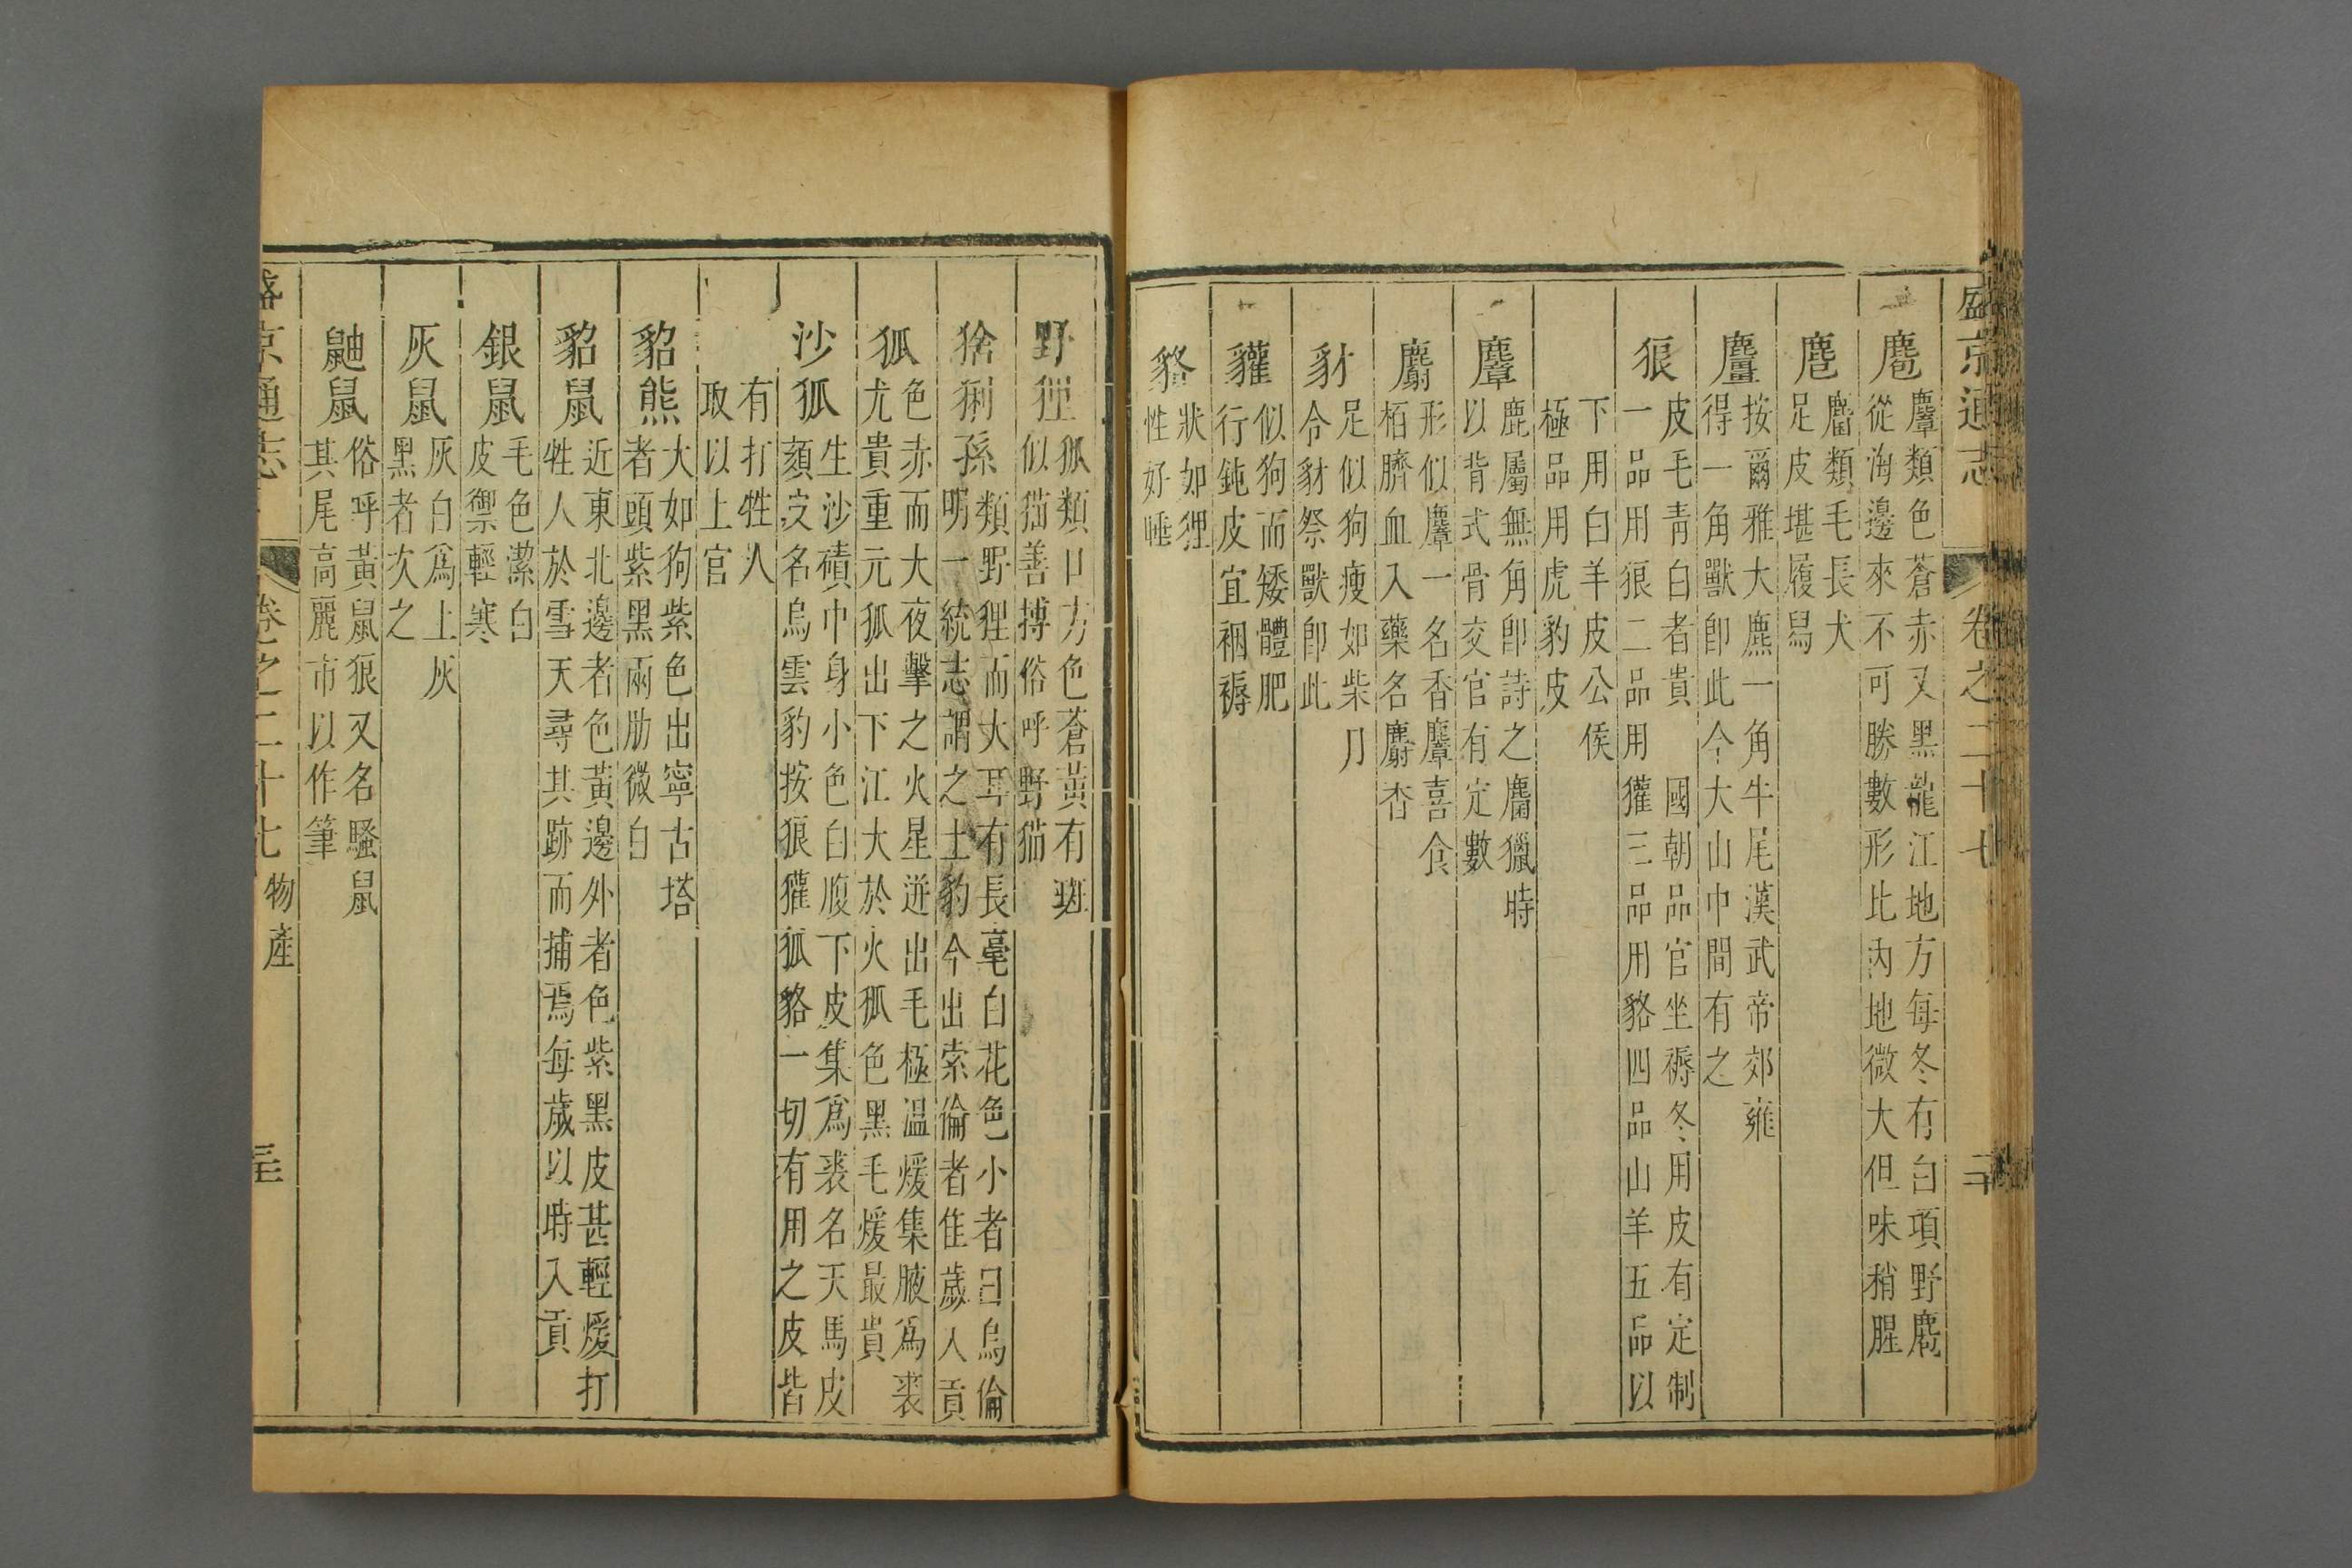 盛京通志 卷之二十七 二十
麅 麞類色蒼赤又黑龍江地方每冬有白項野麅
從海邊來不可勝數形比內地微大但味稍腥
麂 麕類毛長犬
足皮堪履舄
麠 按爾雅大麃一角牛尾漢武帝郊雍
得一角獸卽此今大山中間有之
狼 皮毛靑白者貴 國朝品官坐褥冬用皮有定制
一品用狼二品用獾三品用貉四品山羊五品以
下用白羊皮公侯
極品用虎豹皮
麞 鹿屬無角卽詩之麕獵時
以背式骨交官有定數
麝 形似麞一名香麞喜食
栢臍血入藥名麝香
豺 足似狗瘦如柴月
令豺祭獸卽此
貛 似狗而矮體肥
行鈍皮宜裀褥
貉 狀如狸
性好睡
野狸 狐類口方色蒼黃有斑
似猫善搏俗呼野猫
猞猁孫 類野狸而大耳有長毫白花色小者曰烏倫
明一統志謂之土豹今出索倫者隹歲入貢
狐 色赤而大夜擊之火星迸出毛極温煖集腋爲裘
尤貴重元狐出下江大於火狐色黑毛煖最貴
沙狐 生沙磧中身小色白腹下皮集爲裘名天馬皮
頦皮名烏雲豹按狼獾狐貉一切有用之皮皆
有打牲人
取以上官
貂熊 大如狗紫色出寧古塔
者頭紫黑兩肋微白
貂鼠 近東北邊者色黃邊外者色紫黑皮甚輕煖打
牲人於雪天尋其跡而捕焉每歲以時入貢
銀鼠 毛色潔白
皮禦輕寒
灰鼠 灰白爲上灰
黑者次之
鼬鼠 俗呼黃鼠狼又名騷鼠
其尾高麗市以作筆
盛京通志 卷之二十七 物產